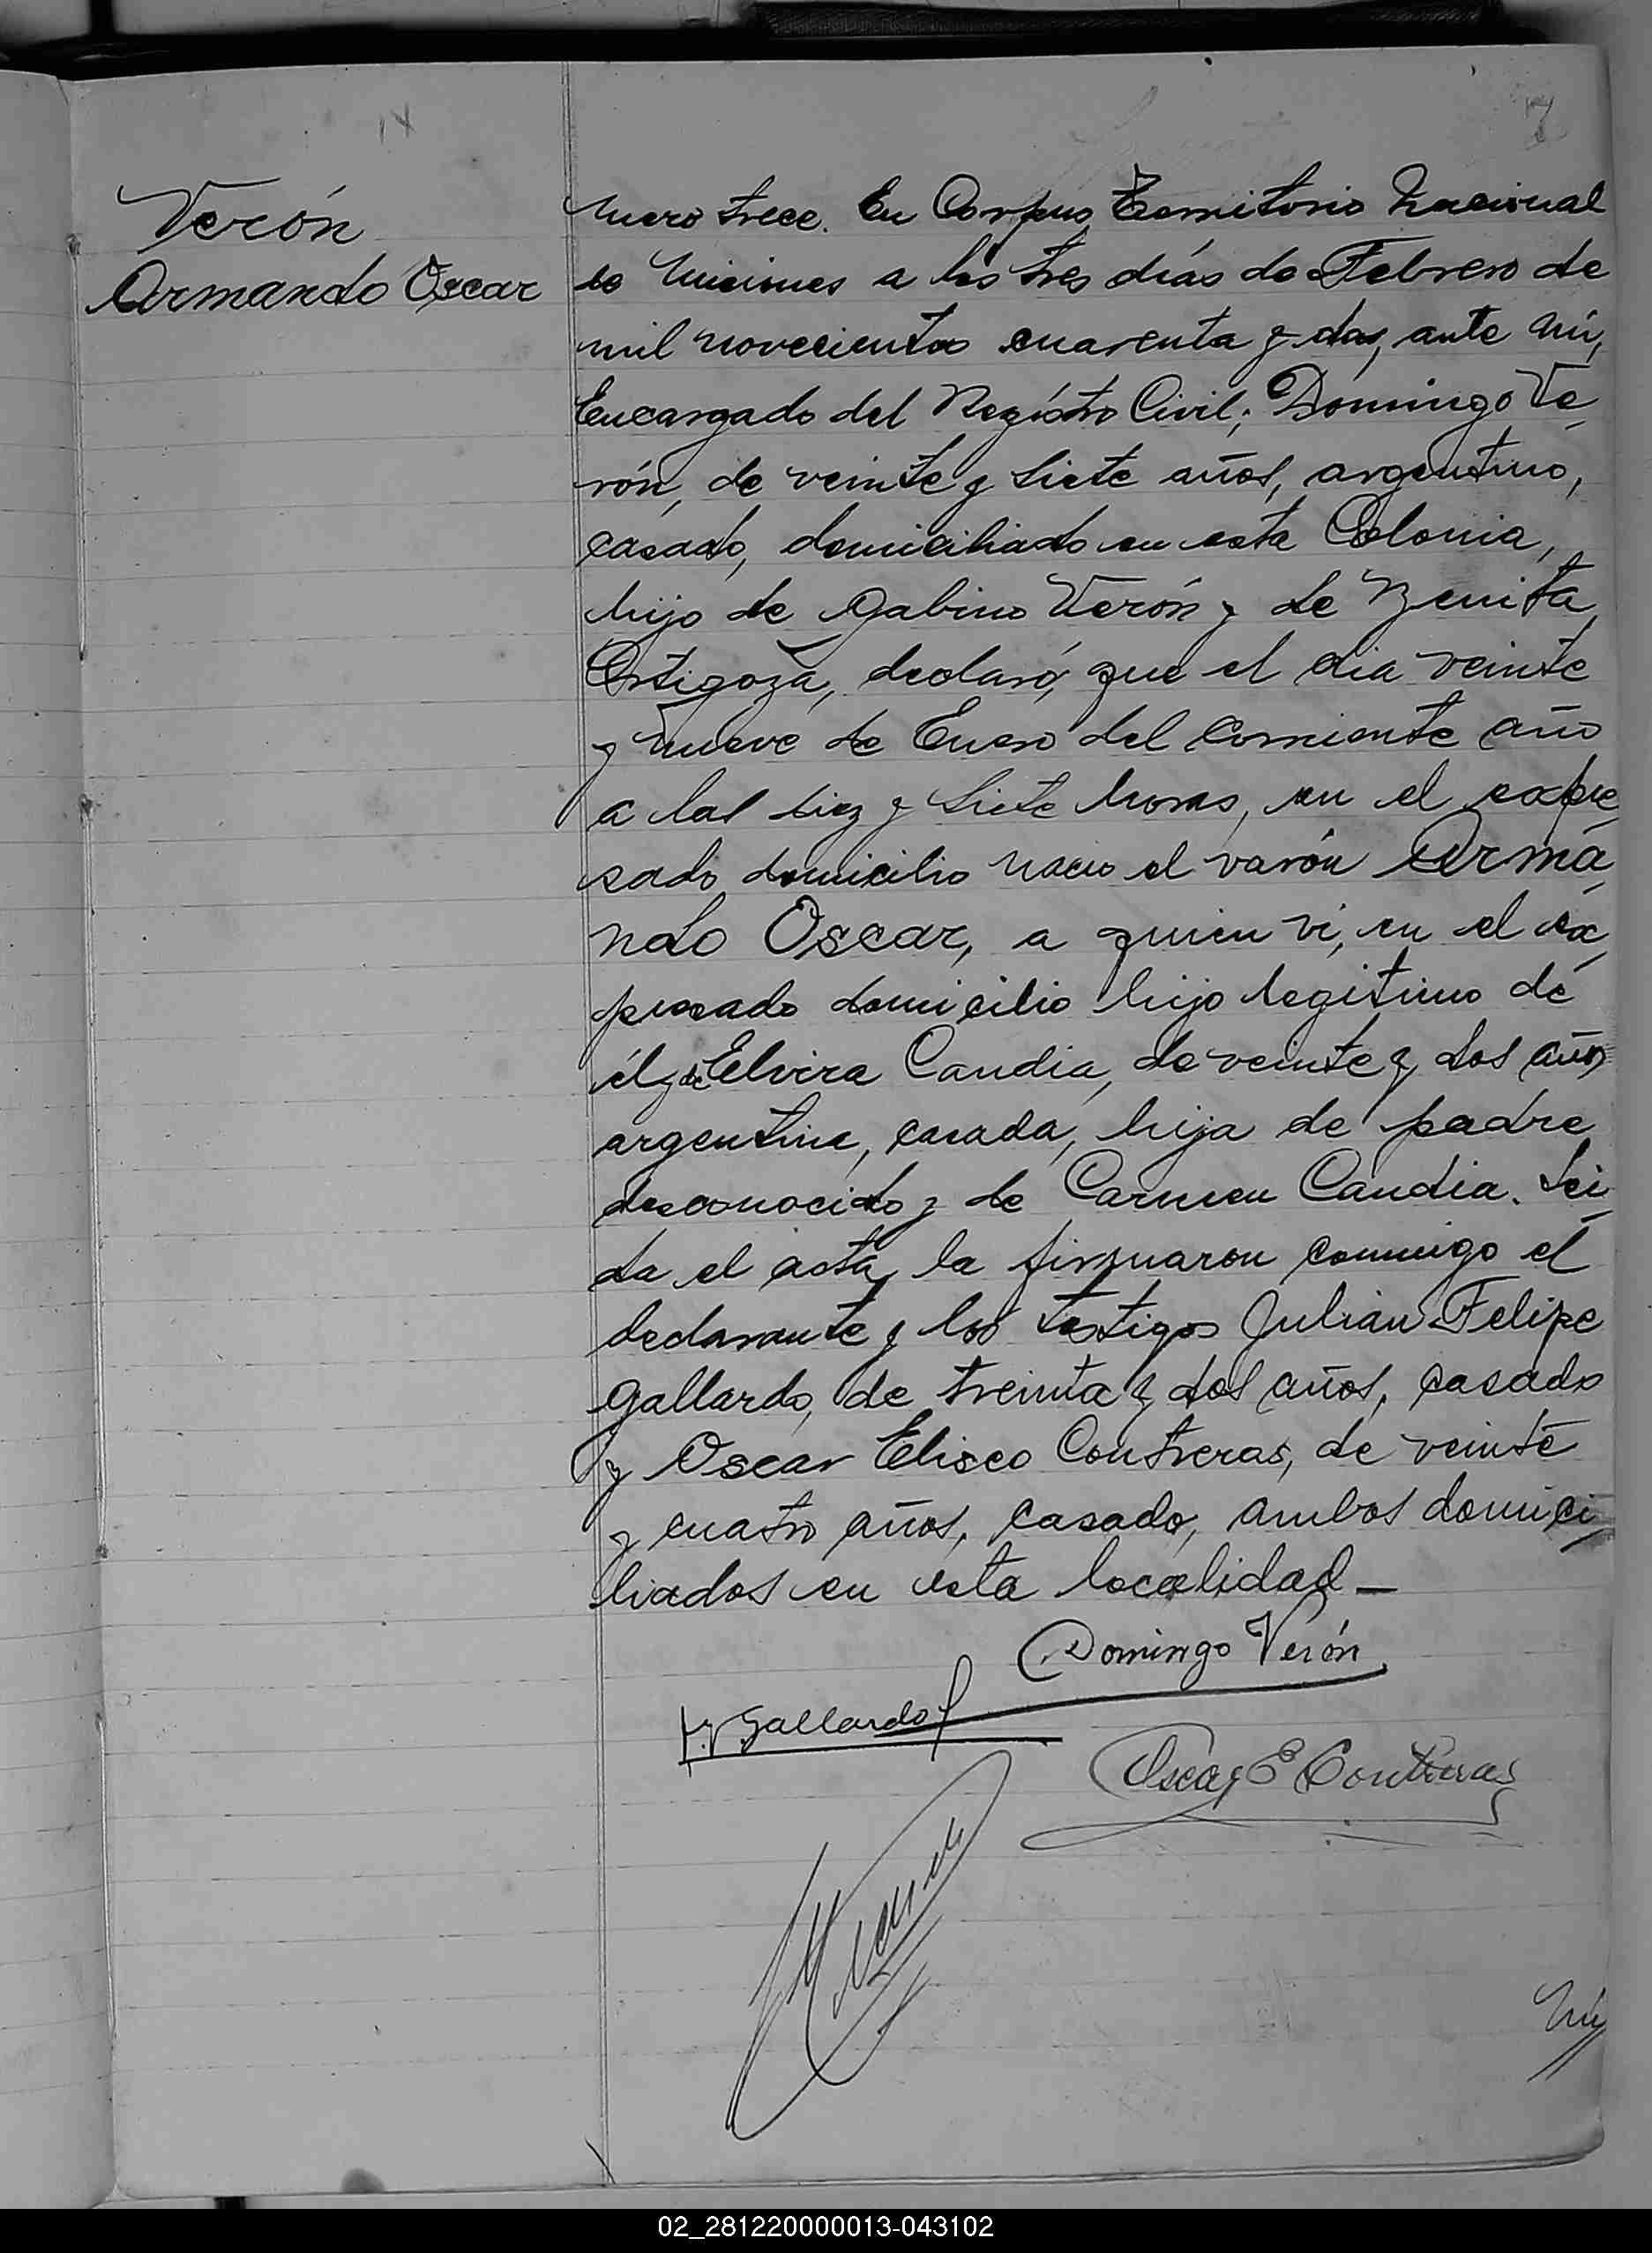 7
Verón
Armando Oscar
mero trece. En Corpus, Territorio Nacional
de Misiones a los tres días de Febrero de
mil novecientos cuarenta y dos, ante mí,
Encargado del Registro Civil; Domingo Ve
rón, de veinte y siete años, argentino,
casado, domiciliado en esta Colonia,
hijo de Gabino Verón y de Benita
Ortigoza, declaró, que el dia veinte
y nueve de Enero del corriente año
a las diez y siete horas, en el expre
sado domicilio nacio el varón Arma
ndo Oscar, a quien vi, en el ex
presado domicilio hijo legitimo de
él y de Elvira Candia, de veinte y dos años
argentina, casada, hija de padre
desconocido y de Carmen Candia. Lei
da el acta, la firmaron conmigo el
declarante y los testigos Julian Felipe
Gallardo, de treinta y dos años, casado
y Oscar Eliseo Contreras, de veinte
y cuatro años, casado, ambos domici
liados en esta localidad—
Domingo Verón
Gallardo
Oscar E Contreras
Nú
02_281220000013-043102